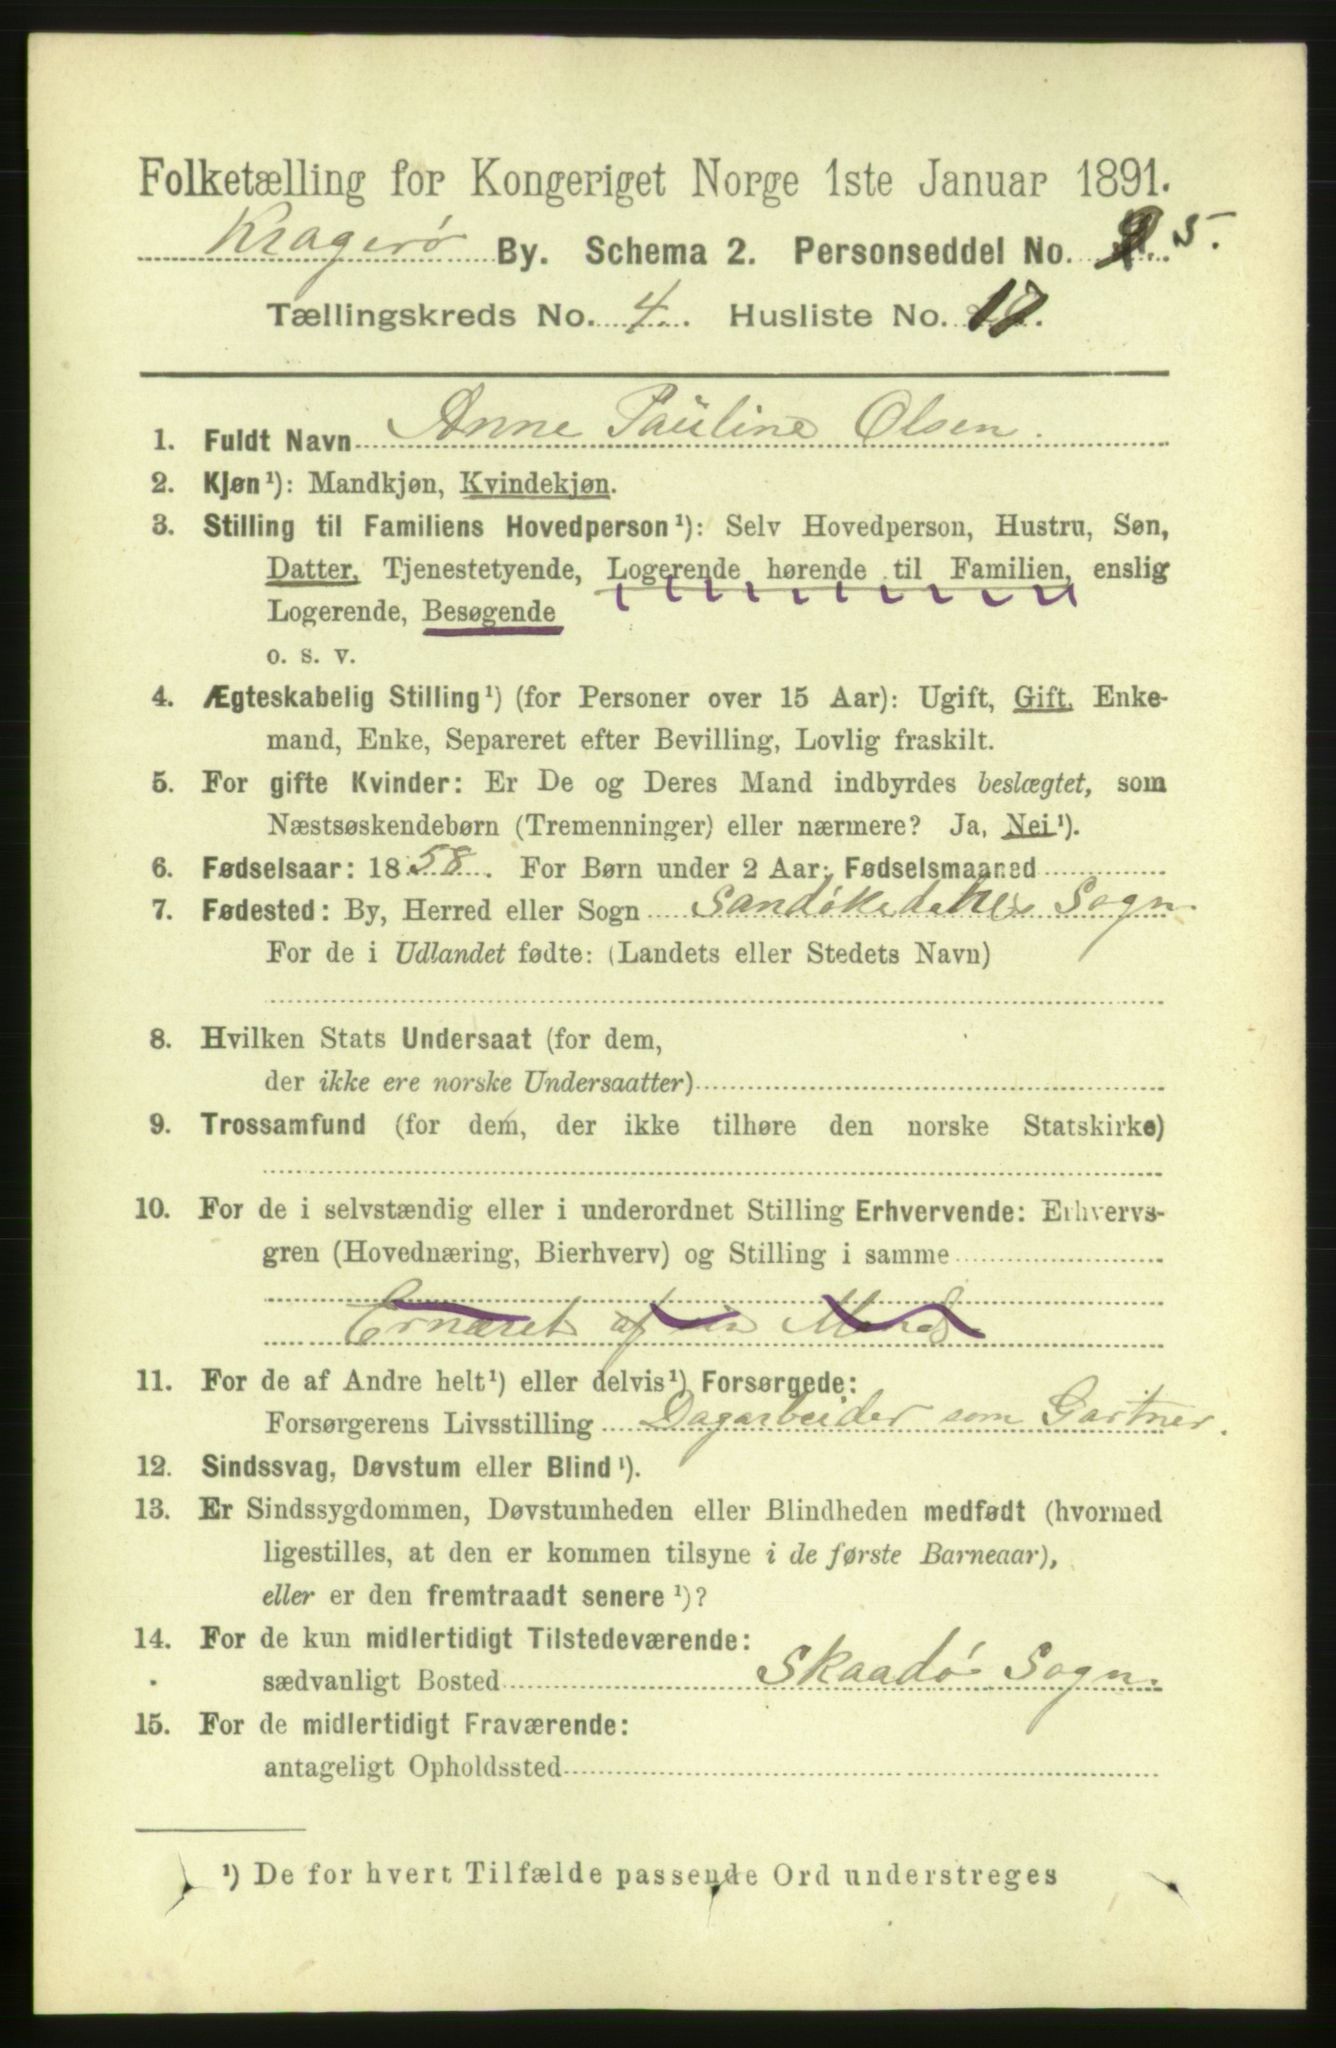 Folketælling for Kongeriget Norge 1ste Januar 1891.
Kragerø By. Schema 2. Personseddel No. 5.
Tællingskreds No. 4. Husliste No. 17.
1. Fuldt Navn Anne Pauline Olsen.
2. Kjøn ¹): Mandkjøn, Kvindekjøn.
3. Stilling til Familiens Hovedperson ¹): Selv Hovedperson, Hustru, Søn,
Datter, Tjenestetyende, Logerende hørende til Familien, enslig
Logerende, Besøgende
o. s. v.
4. Ægteskabelig Stilling ¹) (for Personer over 15 Aar): Ugift, Gift, Enke-
mand, Enke, Separeret efter Bevilling, Lovlig fraskilt.
5. For gifte Kvinder: Er De og Deres Mand indbyrdes beslægtet, som
Næstsøskendebørn (Tremenninger) eller nærmere? Ja, Nei ¹).
6. Fødselsaar: 1858. For Børn under 2 Aar: Fødselsmaaned
7. Fødested: By, Herred eller Sogn Sogn.
For de i Udlandet fødte: (Landets eller Stedets Navn)
8. Hvilken Stats Undersaat (for dem,
der ikke ere norske Undersaatter)
9. Trossamfund (for dem, der ikke tilhøre den norske Statskirke)
10. For de i selvstændig eller i underordnet Stilling Erhvervende: Erhvervs-
gren (Hovednæring, Bierhverv) og Stilling i samme
Ernæret af sin Mand
11. For de af Andre helt ¹) eller delvis ¹) Forsørgede:
Forsørgerens Livsstilling Dagarbeider som Gartner.
12. Sindssvag, Døvstum eller Blind ¹).
13. Er Sindssygdommen, Døvstumheden eller Blindheden medfødt (hvormed
ligestilles, at den er kommen tilsyne i de første Barneaar),
eller er den fremtraadt senere ¹)?
14. For de kun midlertidigt Tilstedeværende:
sædvanligt Bosted Skaadø Sogn.
15. For de midlertidigt Fraværende:
antageligt Opholdssted
¹) De for hvert Tilfælde passende Ord understreges